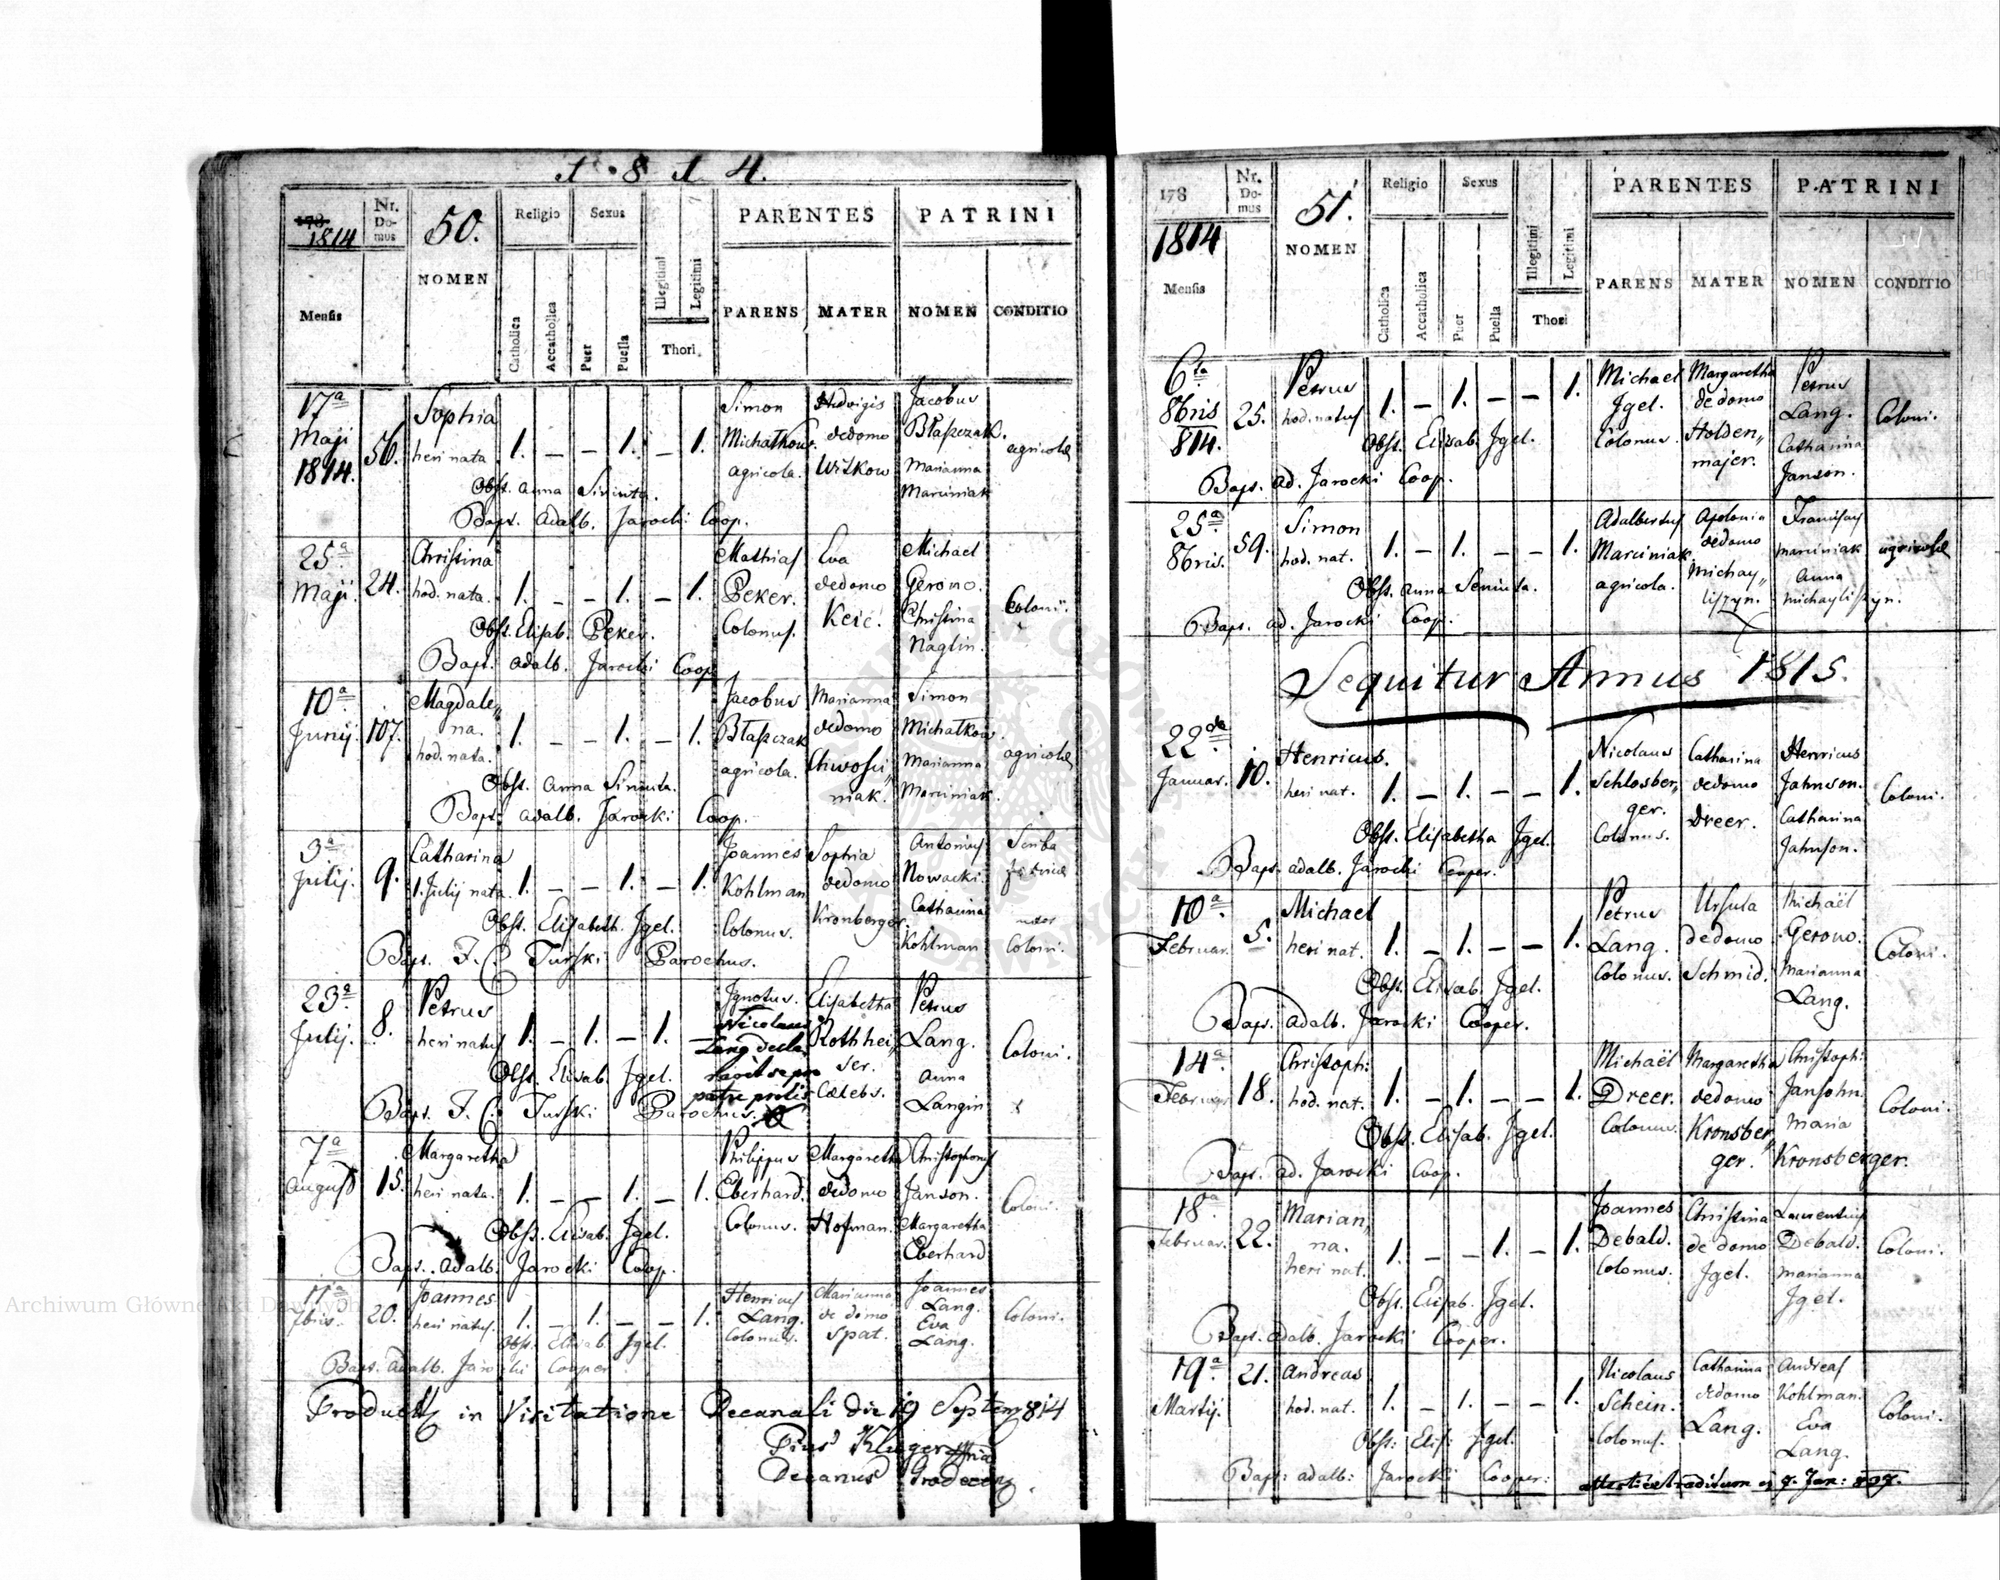 1814.
178
1814
Nr. Do-mus
50.
NOMEN
Religio
Sexus
PARENTES
PATRINI
Mensis
Catholica
Accatholica
Puer
Puella
Illegitimi
Legitimi
Thori
PARENS
MATER
NOMEN
CONDITIO
17a Maji 1814.
56.
Sophia
heri nata
1. – – 1. – 1.
Simon
Michałkow.
agricola.
Hedvigis
de domo
Witkow
Jacobus
Błaszczak.
Marianna
Marciniak
agricolæ
Obst. Anna
Bapt. Adalb. Jarocki Coop.
25a Maji.
24.
Christina
hod. nata.
1. – – 1. – 1.
Mathias
Peker.
Colonus.
Eva
de domo
Keić.
Michael
Gerono.
Christina
Naglin.
Coloni.
Obst. Elisab. Peker.
Bapt. Adalb. Jarocki Coop
10a Junij.
107.
Magdale„
na.
hod. nata.
1. – – 1. – 1.
Jacobus
Błaszczak
agricola.
Marianna
de domo
Chwości„
niak.
Simon
Michałkow.
Marianna
Marciniak.
agricolæ
Obst. Anna
Bapt. Adalb. Jarocki Coop.
3a Julij.
9.
Catharina
1. Julij nata
1. – – 1. – 1.
Joannes
Kohlman
Colonus.
Sophia
de domo
Kronberger.
Antonius
Nowacki.
Catharina
Kohlman
Scriba
Coloni.
Obst. Elisabeth. Jgel.
Bapt. F. C. Turski Parochus.
23a Julij.
8.
Petrus
heri natus
1. – 1. – 1. –
Ignotus.
Nicolaus
Lang decla„
ravit se pro
patre prolis
Elisabetha
Rothhei„
ser.
Cælebs.
Petrus
Lang.
Anna
Langin
Coloni.
Obst. Elisab. Jgel.
Bapt. F. C. Turski Parochus.
7a August
15.
Margaretha
heri nata.
1. – – 1. – 1.
Philippus
Eberhard.
Colonus.
Margaretha
de domo
Hofman.
Christophorus
Janson.
Margaretha
Eberhard
Coloni.
Obst. Elisab. Jgel.
Bapt. Adalb. Jarocki Coop.
17a 7bris.
20.
Joannes
heri natus.
1. – 1. – – 1.
Henricus
Lang.
Colonus.
Marianna
de domo
Spat.
Joannes
Lang.
Eva
Lang.
Coloni.
Obst. Elisab. Jgel.
Bapt. Adalb. Jarocki Cooper
in Visitatione Decanali die 19 Septem 814
Pius Kluger
Decanus
178
1814
Nr. Do-mus
51.
NOMEN
Religio
Sexus
PARENTES
PATRINI
Mensis
Catholica
Accatholica
Puer
Puella
Illegitimi
Legitimi
Thori
PARENS
MATER
NOMEN
CONDITIO
6ta 8bris 814.
25.
Petrus
hod. natus
1. – 1. – – 1.
Michael
Jgel.
Colonus.
Margaretha
de domo
Holden„
majer.
Petrus
Lang.
Catharina
Janson.
Coloni.
Obst. Elisab. Jgel.
Bapt. Ad. Jarocki Coop.
25a 8bris.
59.
Simon
hod. nat.
1. – 1. – – 1.
Adalbertus
Marciniak
agricola.
Apolonia
de domo
Michay„
liszyn.
Marciniak
Anna
Michayliszyn.
agricolæ
Obst. Anna
Bapt. ad. Jarocki Coop.
Sequitur Annus 1815.
22da Januar.
10.
Henricus.
heri nat.
1. – 1. – – 1.
Nicolaus
Schlosber„
ger.
Colonus.
Catharina
de domo
Dreer.
Henricus
Jahnson.
Catharina
Jahnson.
Coloni.
Obst. Elisabetha Jgel.
Bapt. adalb. Jarocki Cooper.
10a Februar.
5.
Michael
heri nat.
1. – 1. – – 1.
Petrus
Lang.
Colonus.
Ursula
de domo
Schmid.
Michaël
Gerono.
Marianna
Lang.
Coloni.
Obst. Elisab. Jgel.
Bapt. adalb. Jarocki Cooper.
14a Februar.
18.
Christoph:
hod. nat.
1. – 1. – – 1.
Michaël
Dreer.
Colonus.
Margaretha
de domo
Kronsber„
ger.
Christoph:
Jansohn.
Maria
Kronsberger.
Coloni.
Obst. Elisab. Jgel.
Bapt. ad. Jarocki Coop.
18a Februar.
22.
Marian„
na.
heri nat.
1. – – 1. – 1.
Joannes
Debald.
Colonus.
Christina
de domo
Jgel.
Laurentius
Debald.
Marianna
Jgel.
Coloni.
Obst. Elisab. Jgel.
Bapt. adalb. Jarocki Cooper.
19a Martij.
21.
Andreas
hod. nat.
1. – 1. – – 1.
Nicolaus
Schein.
Colonus.
Catharina
de domo
Lang.
Andreas
Kohlman.
Eva
Lang.
Coloni.
Obst: Elis: Jgel.
Bapt: adalb: Jarocki Cooper:
Archiwum Główne Akt Dawnych